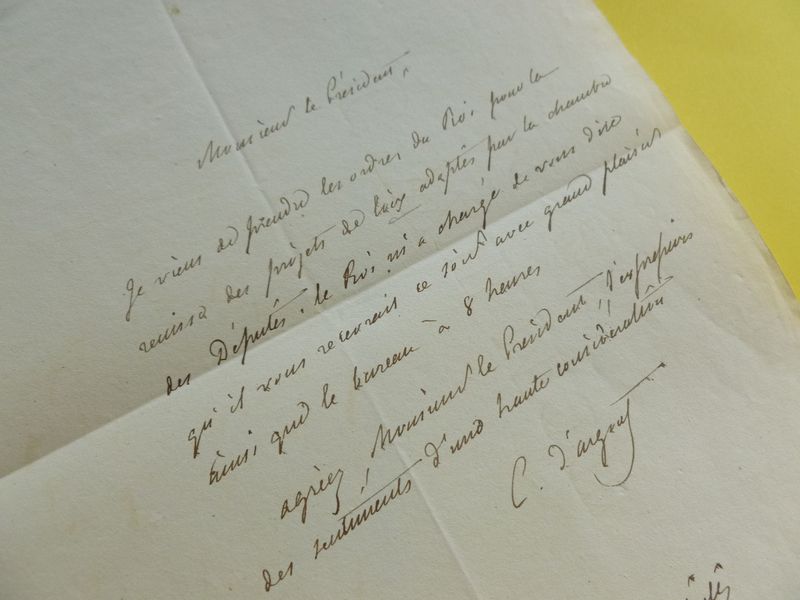 Monsieur le Président,
Je viens de prendre les ordres du Roi pour la
remise des projets de loix adoptés par la chambre
des Députés. le Roi m'a chargé de vous dire
qu'il vous recevrait ce soir avec grand plaisir
ainsi que le bureau à 8 heures
agréez, Monsieur le Président, l'expression
des sentiments d'une haute considération
C. d'argout